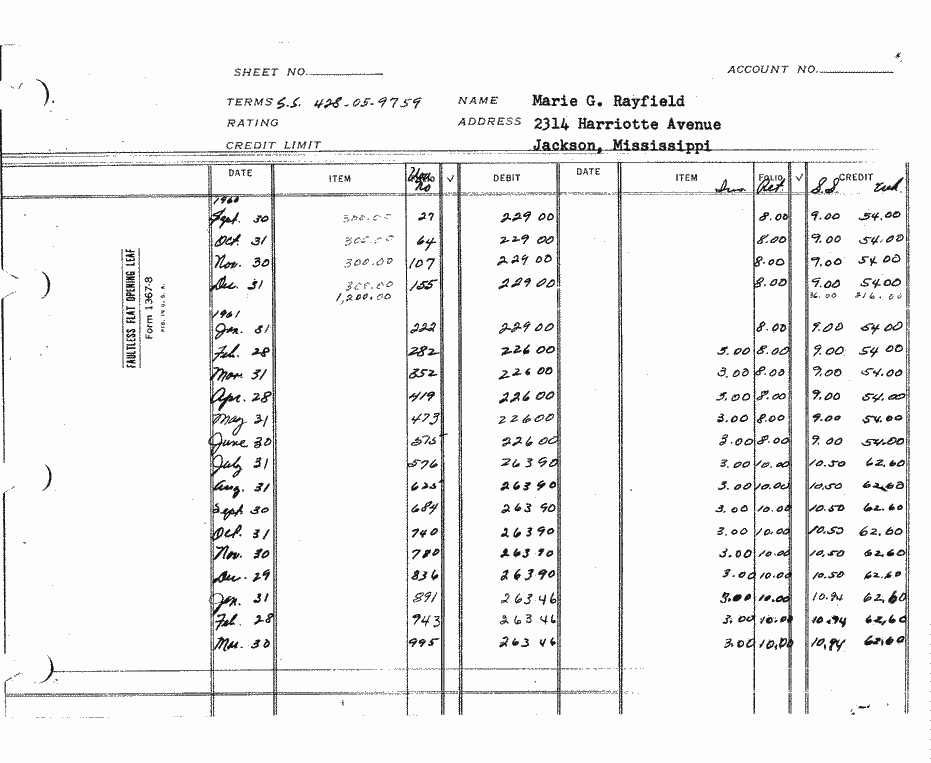 SHEET NO. ACCOUNT NO.
TERMS S.S. 428-05-9759 NAME Marie G. Rayfield
RATING ADDRESS 2314 Harriotte Avenue
CREDIT LIMIT Jackson, Mississippi
DATE ITEM No √ DEBIT DATE ITEM Ins. FOLIO Ret. √ S.S. CREDIT
1960
Sept. 30 300.00 27 229 00 8.00 9.00 54.00
Oct. 31 300.00 64 229 00 8.00 9.00 54.00
Nov. 30 300.00 107 229 00 8.00 9.00 54.00
Dec. 31 300.00 155 229 00 8.00 9.00 54.00
1,200.00 36.00 216.00
1961
Jan. 31 222 229 00 8.00 9.00 54.00
Feb. 28 282 226 00 3.00 8.00 9.00 54 00
Mar. 31 352 226 00 3.00 8.00 9.00 54.00
Apr. 28 419 226 00 3.00 8.00 9.00 54.00
May 31 473 226 00 3.00 8.00 9.00 54.00
June 30 226 00 3.00 8.00 9.00 54.00
July 31 576 263 90 3.00 10.00 10.50 62.60
Aug. 31 625 263 90 3.00 10.00 10.50 62.60
Sept 30 684 263 90 3.00 10.00 10.50 62.60
Oct. 31 740 263 90 3.00 10.00 10.50 62.60
Nov. 30 780 263 90 3.00 10.00 10.50 62.60
Dec. 29 836 263 90 3.00 10.00 10.50 62.60
Jan. 31 891 263 46 3.00 10.00 10.94 62.60
Feb. 28 943 263 46 3.00 10.00 10.94 62.60
Mar. 30 995 263 46 3.00 10.00 10.94 62.60
FAULTLESS FLAT OPENING LEAF
Form 1367-8
MFG. IN U.S.A.